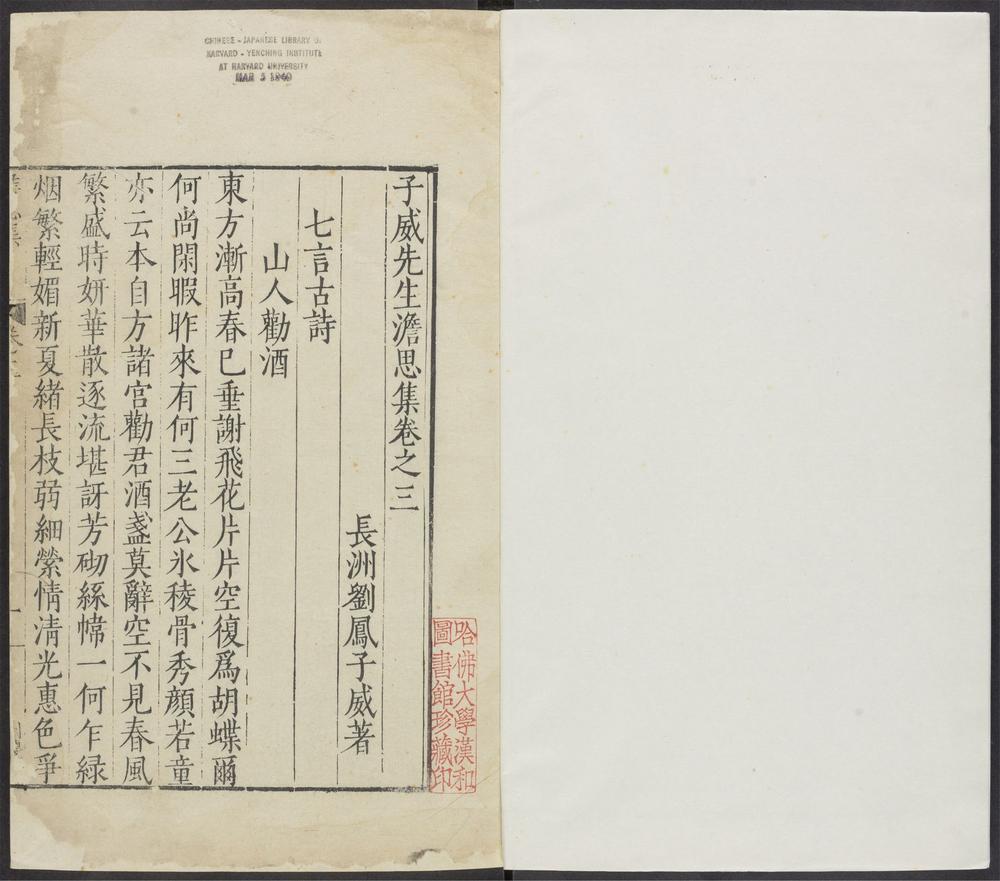 CHINESE - JAPANESE LIBRARY
HARVARD - YENCHING INSTITUTE
AT HARVARD UNIVERSITY
MAR 5 1940
子威先生澹思集卷之三
長洲劉鳳子威著
七言古詩
山人勸酒
東方漸高春已垂謝飛花片片空復爲胡蝶爾
何尚閑暇昨來有何三老公氷稜骨秀顔若童
亦云本自方諸宫勸君酒盞莫辭空不見春風
繁盛時妍華散逐流堪訝芳砌絲幃一何乍緑
烟繁輕媚新夏緒長枝弱細縈情清光惠色爭
哈佛大學漢和
圖書館珍藏印